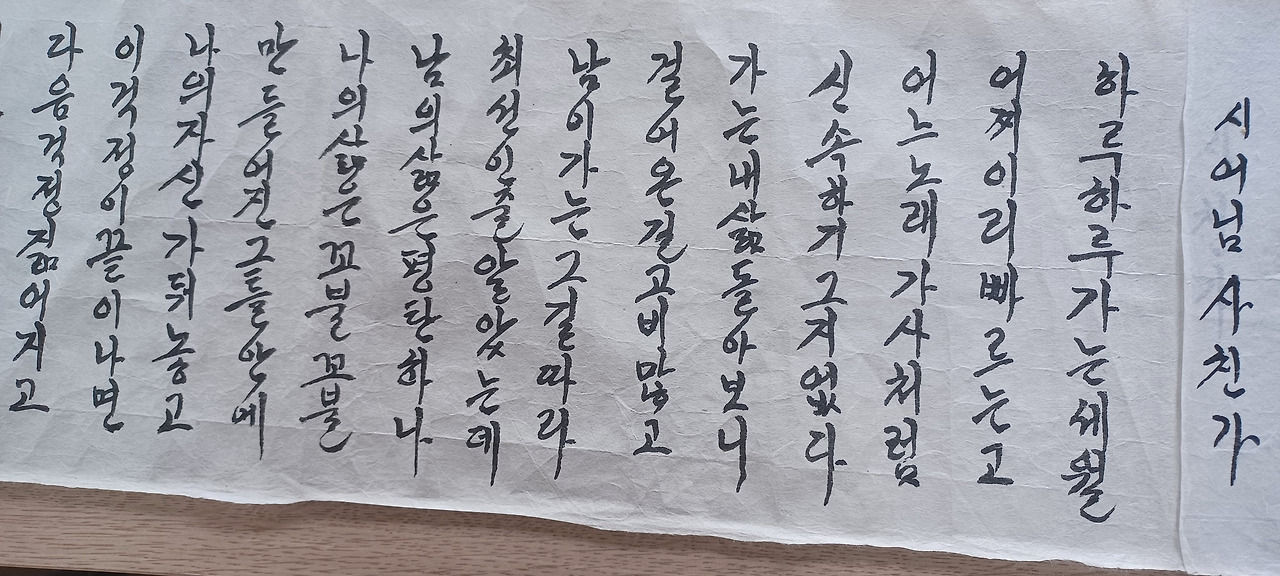 시어님사친가
하르하루가는세월
어찌이리빠르는고
어느노래가사처럼
신속하기그지없다
가는내삶돌아보니
걸어온길고비많고
남이가는그길따라
최선인줄알았는데
남의삶은평탄하나
나의삶은꼬불꼬불
만들어진그틀안에
나의자신가둬놓고
이걱정이끝이나면
다음걱정짊어지고